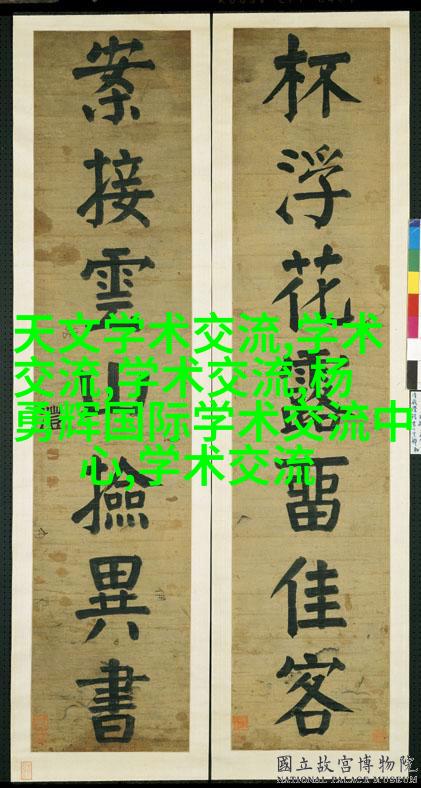 杯浮花露留佳客
案接雲山撿異書
天文学术交流,学术
交流,学术交流,杨
勇辉国际学术交流中
心,学术交流
國立故宮博物院
NATIONAL PALACE MUSEUM